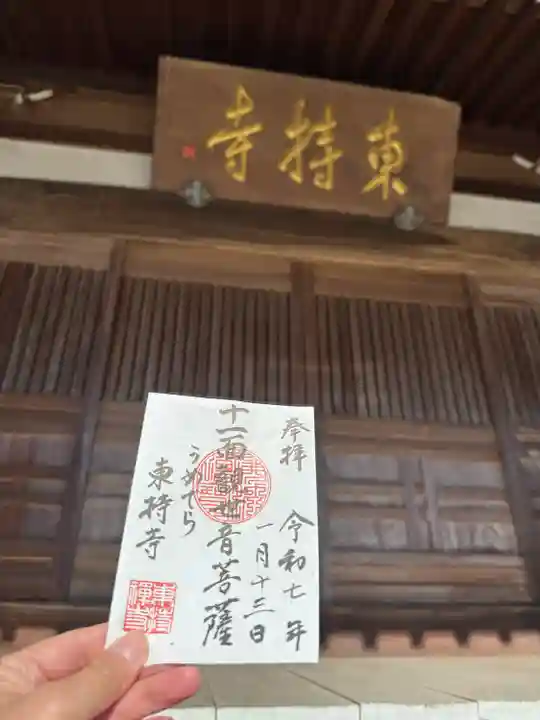 東持寺
奉拝
令和七年
一月十三日
十一面観世音菩薩
うめでら
東持寺
東持
禅寺